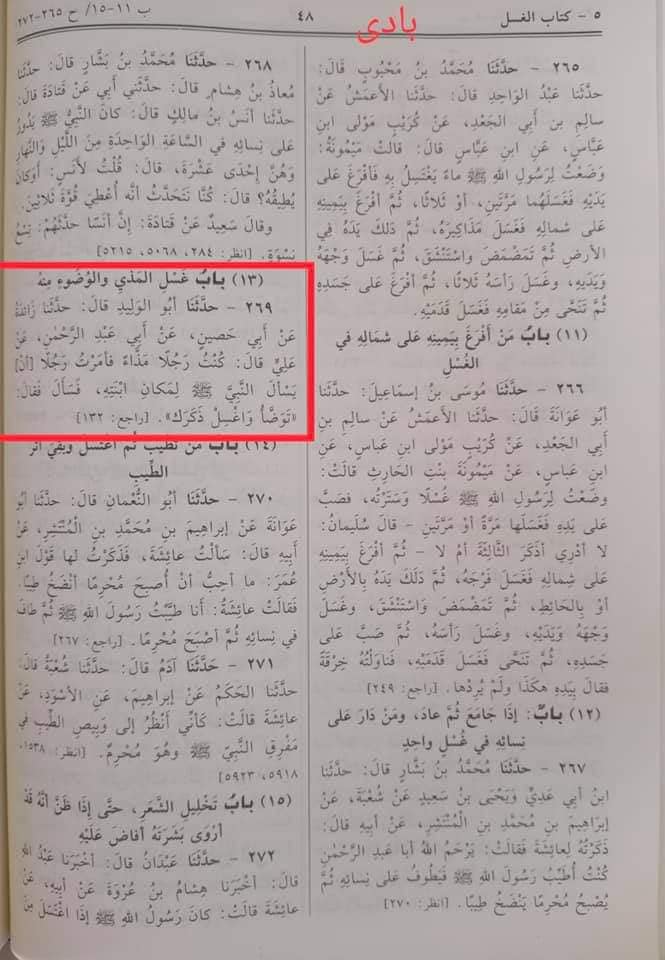 ٥ - كتاب الغسل
٤٨
ب ١١-١٥/ ح ٢٦٥-٢٧٢
بادی
٢٦٥ - حدَّثَنَا مُحَمَّدُ بنُ مَحْبُوبٍ قَالَ:
حدَّثَنا عَبْدُ الوَاحِدِ قالَ: حدَّثنا الأعمَشُ عَنْ
سالِمِ بن أبي الجَعْدِ، عَنْ كُرَيْبٍ مَوْلى ابنِ
عبَّاسٍ، عَنِ ابنِ عَبَّاسٍ قَالَ: قالَتْ مَيْمُونَةُ:
وَضَعْتُ لِرَسُولِ اللهِ ﷺ ماءً يَغْتَسِلُ بِهِ فَأفْرَغَ عَلى
يَدَيْهِ فَغَسَلَهُما مَرَّتَيْنِ، أوْ ثَلاثًا، ثُمَّ أفْرَغَ بِيَمِينِهِ
على شمالِهِ فَغَسَلَ مَذَاكِيرَهُ، ثُمَّ دَلَكَ يَدَهُ
الأرضِ ثُمَّ تَمَضْمَضَ وَاسْتَنْشَقَ، ثُمَّ غَسَلَ وَجْهَهُ
وَيَدَيْهِ، وغَسَلَ رَأسَهُ ثَلاثًا، ثُمَّ أفْرَغَ عَلى جَسَدِهِ
ثُمَّ تَنَحَّى مِنْ مَقامِهِ فَغَسَلَ قَدَمَيْهِ.
(١١) بابُ مَنْ أفْرَغَ بِيَمِينِهِ عَلى شمالِهِ في
الغُسْلِ
٢٦٦ - حدَّثَنَا مُوسَى بنُ إسماعِيلَ: حدَّثنا
أبُو عَوَانَةَ قَالَ: حدَّثنا الأعمَشُ عَنْ سالِمِ بنِ
أبي الجَعْدِ، عَنْ كُرَيْبٍ مَوْلى ابنِ عباسٍ، عَنِ
ابنِ عباسٍ، عَنْ مَيْمُونَةَ بِنْتِ الحَارِثِ قالَتْ:
وضَعْتُ لِرَسُولِ اللهِ ﷺ غُسْلًا وَسَتَرْتُه، فَصَبَّ
عَلى يَدِهِ فَغَسَلَها مَرَّةً أوْ مَرَّتَيْنِ - قَالَ سُلَيمانُ:
لا أدْرِي أذَكَرَ الثَّالِثَةَ أمْ لا - ثُمَّ أفْرَغَ بِيَمِينِهِ
عَلى شِمالِهِ فَغَسَلَ فَرْجَهُ، ثُمَّ دَلَكَ يَدَهُ بِالأَرْضِ
أوْ بِالحَائِطِ، ثُمَّ تَمَضْمَضَ وَاسْتَنْشَقَ، وغَسَلَ
وَجْهَهُ وَيَدَيْهِ، وغَسَلَ رَأسَهُ، ثُمَّ صَبَّ عَلى
جَسَدِهِ، ثُمَّ تَنَحَّى فَغَسَلَ قَدَمَيْهِ، فَناوَلْتُهُ خِرْقَةً
فَقالَ بِيَدِهِ هكَذَا ولَمْ يُرِدْها. [راجع: ٢٤٩]
(١٢) بابٌ: إذَا جَامَعَ ثُمَّ عادَ، ومَنْ دَارَ عَلى
نِسائِهِ في غُسْلٍ واحِدٍ
٢٦٧ - حدَّثَنَا مُحَمَّدُ بنُ بَشَّارٍ قَالَ: حدَّثنا
ابنُ أبي عَدِيٍّ وَيَحْيَى بنُ سَعِيدٍ عَنْ شُعْبَةَ، عَنْ
إبراهيمَ بنِ مُحَمَّدِ بنِ الْمُنْتَشِرِ، عَنْ أبيهِ قالَ:
ذَكَرْتُهُ لِعائِشَةَ فَقالَتْ: يَرْحَمُ اللهُ أبا عَبدِ الرَّحْمٰنِ
كُنْتُ أُطَيِّبُ رَسُولَ اللهِ ﷺ فَيَطُوفُ عَلى نِسائِهِ ثُمَّ
يُصْبِحُ مُحْرِمًا يَنْضَخُ طِيبًا. [انظر: ٢٧٠]
٢٦٨ - حدَّثَنَا مُحَمَّدُ بنُ بَشَّارٍ قالَ: حدَّثنا
مُعاذُ بنُ هِشامٍ قالَ: حدَّثَني أبي عَنْ قَتادَةَ قالَ:
حدَّثنا أنَسُ بنُ مالِكٍ قَالَ: كانَ النَّبِيُّ ﷺ يَدُورُ
عَلى نِسائِهِ في السَّاعَةِ الوَاحِدَةِ مِنَ اللَّيْلِ والنَّهارِ
وَهُنَّ إحْدَى عَشْرَةَ، قالَ: قُلْتُ لأنَسٍ: أوَكانَ
يُطِيقُهُ؟ قَالَ: كُنَّا نَتَحَدَّثُ أنَّه أُعْطِيَ قُوَّةَ ثَلاثينَ.
وقالَ سَعِيدٌ عَنْ قَتادَةَ: إنَّ أنَسًا حدَّثَهُمْ: تِسْعُ
نِسْوَةٍ. [انظر: ٢٨٤، ٥٠٦٨، ٥٢١٥]
(١٣) بابُ غَسْلِ المَذْيِ والوُضُوءِ مِنهُ
٢٦٩ - حدَّثَنا أبُو الوَلِيدِ قَالَ: حدَّثَنا زَائِدَةُ
عَنْ أبي حَصِينٍ، عَنْ أبي عَبْدِ الرَّحْمٰنِ، عَنْ
عَليٍّ قَالَ: كُنْتُ رَجُلًا مَذَّاءً فَأمَرْتُ رَجُلًا [أنْ]
يَسْألَ النَّبِيَّ ﷺ لِمَكانِ ابْنَتِهِ، فَسَألَ فَقالَ:
«تَوَضَّأْ وَاغْسِلْ ذَكَرَكَ». [راجع: ١٣٢]
(١٤) بابُ مَنْ تَطَيَّبَ ثُمَّ اغْتَسَلَ وبَقِيَ أثَرُ
الطِّيبِ
٢٧٠ - حدَّثَنا أبُو النُّعْمانِ قالَ: حدَّثَنا أبُو
عَوَانَةَ عَنْ إبراهِيمَ بنِ مُحَمَّدِ بنِ الْمُنْتَشِرِ، عَنْ
أبِيهِ قالَ: سَألْتُ عائِشَةَ، فَذَكَرْتُ لها قَوْلَ ابنِ
عُمَرَ: ما أُحِبُّ أنْ أُصبِحَ مُحْرِمًا أنْضَخُ طِيبًا.
فَقالَتْ عائِشَةُ: أنا طَيَّبْتُ رَسُولَ اللهِ ﷺ ثُمَّ طافَ
في نِسائِهِ ثُمَّ أصْبَحَ مُحْرِمًا. [راجع: ٢٦٧]
٢٧١ - حَدَّثَنا آدَمُ قالَ: حدَّثَنا شُعْبَةُ قالَ:
حدَّثَنا الحَكَمُ عَنْ إبراهِيمَ، عَنِ الأسْوَدِ، عَنْ
عائِشَةَ قالَتْ: كَأنِّي أنْظُرُ إلى وَبِيصِ الطِّيبِ في
مَفْرِقِ النَّبِيِّ ﷺ وهُوَ مُحْرِمٌ. [انظر: ١٥٣٨،
٥٩١٨، ٥٩٢٣]
(١٥) بابُ تَخْلِيلِ الشَّعَرِ، حتَّى إذَا ظَنَّ أنَّهُ قَدْ
أرْوَى بَشَرَتَهُ أفاضَ عَلَيْهِ
٢٧٢ - حدَّثَنا عَبْدَانُ قالَ: أخْبَرَنا عَبْدُ اللهِ
قالَ: أخْبَرَنا هِشامُ بنُ عُرْوَةَ عَنْ أبِيهِ، عَنْ
عائِشَةَ قَالَتْ: كانَ رَسُولُ اللهِ ﷺ إذَا اغْتَسَلَ مِنَ